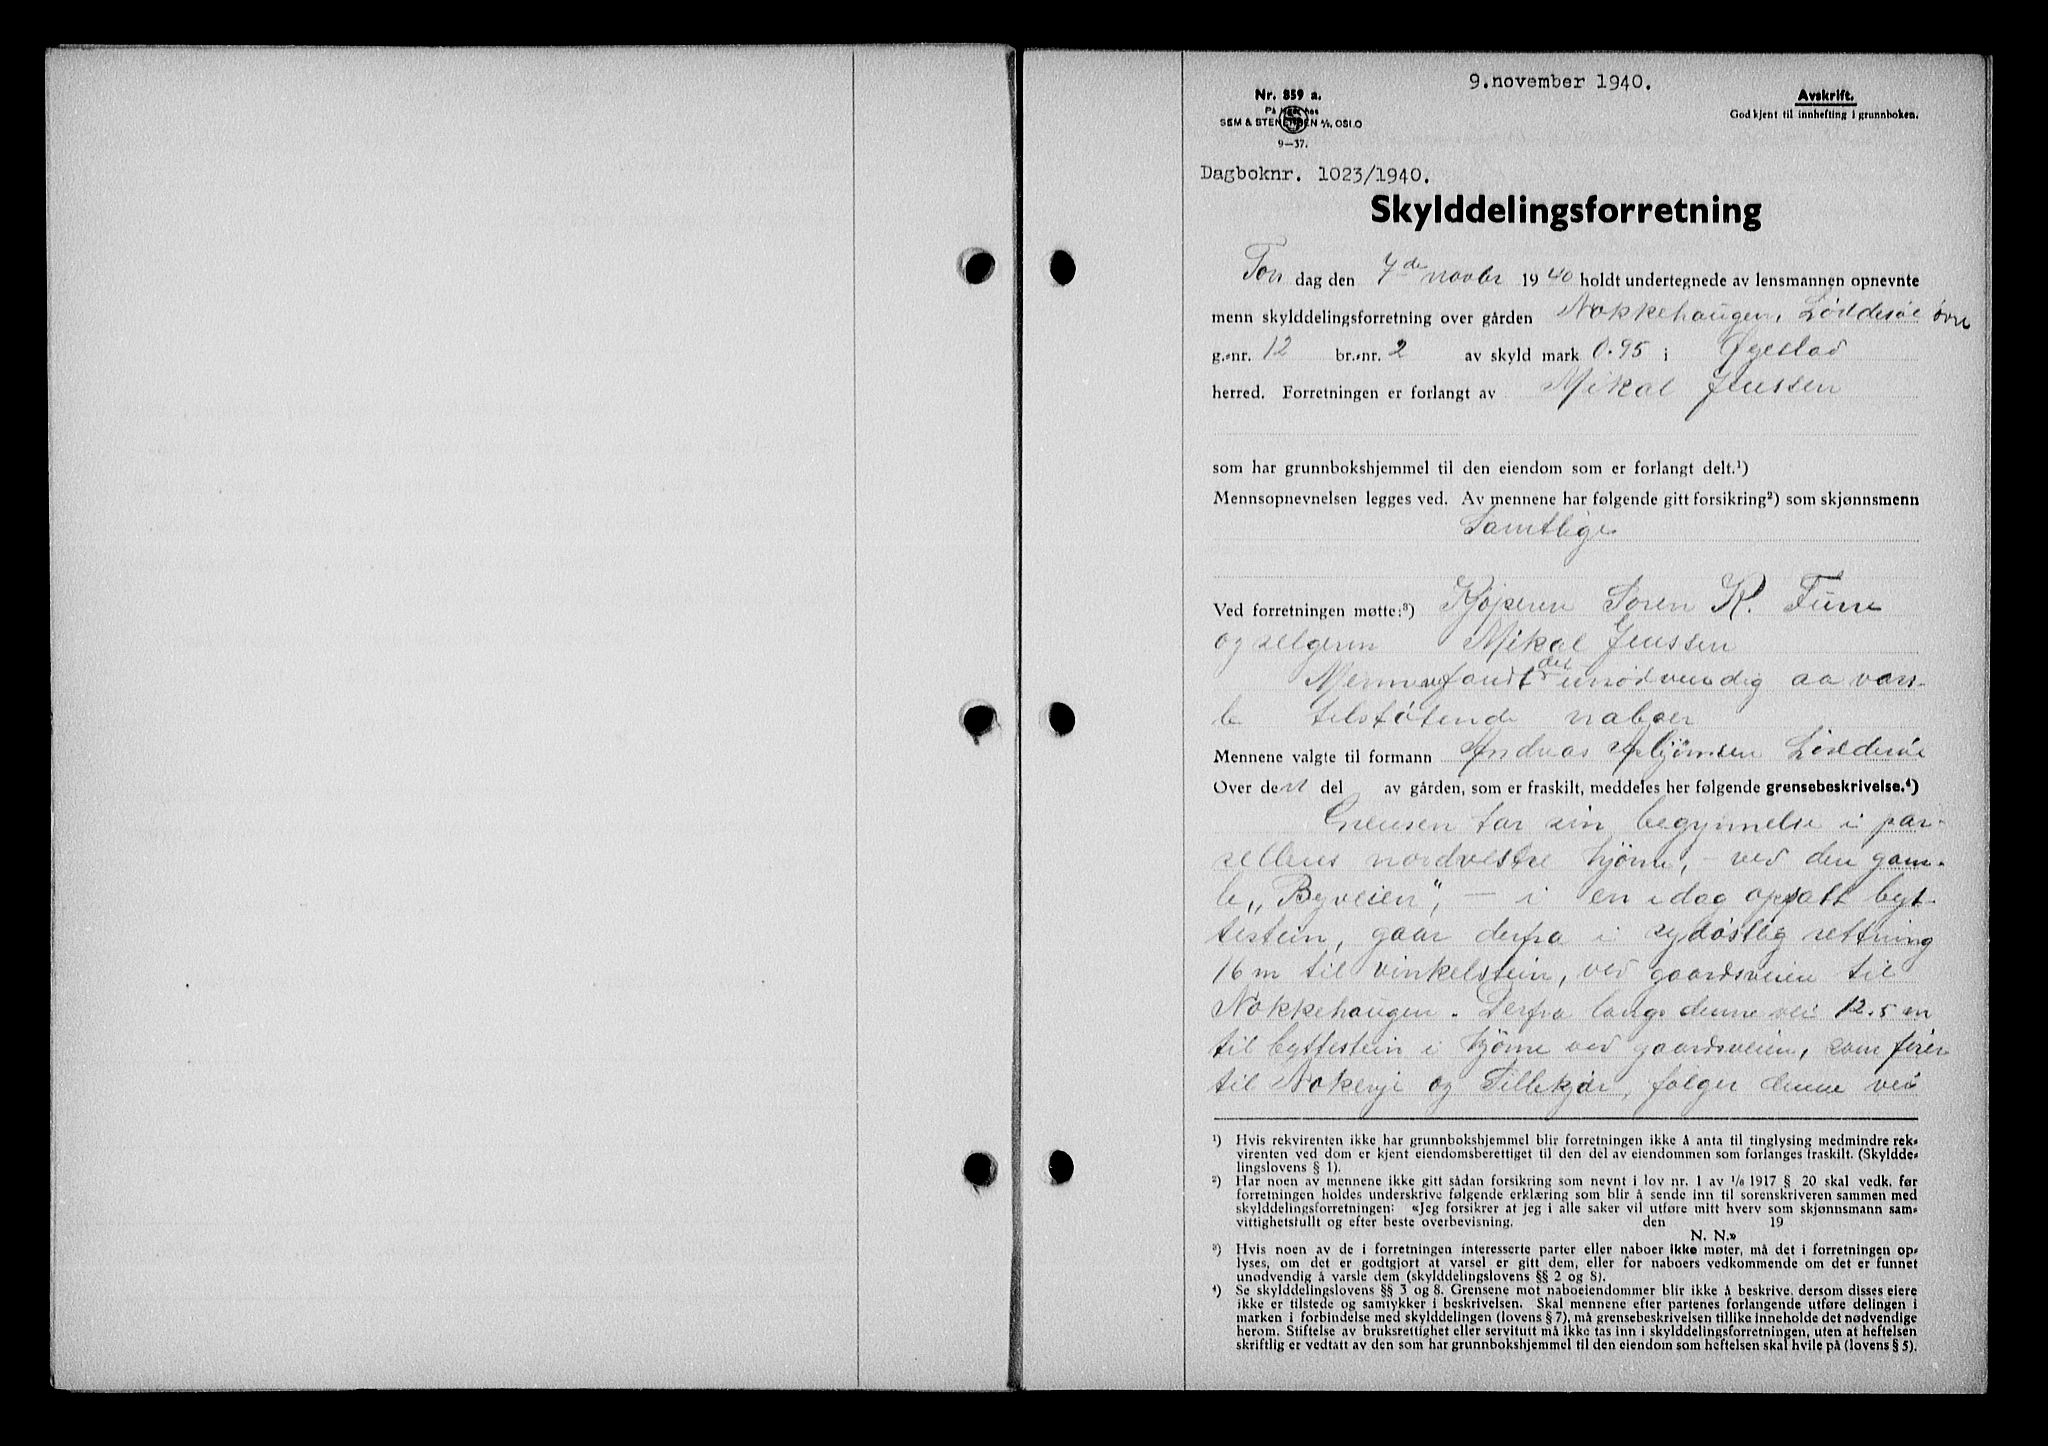 9. november 1940.
Nr. 859 a.
På lager hos
SEM & STENERSEN A/S, OSLO
9—37.
Avskrift.
Godkjent til innhefting i grunnboken.
Dagboknr. 1023/1940.
Skylddelingsforretning
Tors dag den 7de novbr 1940 holdt undertegnede av lensmannen opnevnte
menn skylddelingsforretning over gården Nokkehaugen, Løddesøl øvre
g.-nr. 12 br.-nr. 2 av skyld mark 0.95 i Øyestad
herred. Forretningen er forlangt av Mikal Jenssen
som har grunnbokshjemmel til den eiendom som er forlangt delt.¹)
Mennsopnevnelsen legges ved. Av mennene har følgende gitt forsikring²) som skjønnsmenn
Samtlige
Ved forretningen møtte:³) Kjøperen Søren K. Furre
og selgeren Mikal Jenssen
Mennene fandt det unødvendig aa vars-
le tilstøtende naboer
Mennene valgte til formann Andreas Løddesøl
Over den del av gården, som er fraskilt, meddeles her følgende grensebeskrivelse.⁴)
Grensen tar sin begynnelse i par-
sellens nordvestre hjørne, – ved den gam-
le „Byveien", – i en idag opsatt byt-
testein, gaar derfra i sydøstlig rettning
16 m til vinkelstein, ved gaardsveien til
Nokkehaugen. Derfra langs denne vei 12.5 m
til byttestein i hjørne ved gaardsveien, som fører
til og følger denne vei
¹) Hvis rekvirenten ikke har grunnbokshjemmel blir forretningen ikke å anta til tinglysing medmindre rek-
virenten ved dom er kjent eiendomsberettiget til den del av eiendommen som forlanges fraskilt. (Skyldde-
lingslovens § 1).
²) Har noen av mennene ikke gitt sådan forsikring som nevnt i lov nr. 1 av 1/6 1917 § 20 skal vedk. før
forretningen holdes underskrive følgende erklæring som blir å sende inn til sorenskriveren sammen med
skylddelingsforretningen: «Jeg forsikrer at jeg i alle saker vil utføre mitt hverv som skjønnsmann sam-
vittighetsfullt og efter beste overbevisning. den 19
N. N.»
³) Hvis noen av de i forretningen interesserte parter eller naboer ikke møter, må det i forretningen op-
lyses, om det er godtgjort at varsel er gitt dem, eller for naboers vedkommende om det er funnet
unødvendig å varsle dem (skylddelingslovens §§ 2 og 8).
⁴) Se skylddelingslovens §§ 3 og 8. Grensene mot naboeiendommer blir ikke å beskrive, dersom disses eiere
ikke er tilstede og samtykker i beskrivelsen. Skal mennene efter partenes forlangende utføre delingen i
marken i forbindelse med skylddelingen (lovens § 7), må grensebeskrivelsen tillike inneholde det nødvendige
herom. Stiftelse av bruksrettighet eller servitutt må ikke tas inn i skylddelingsforretningen, uten at heftelsen
skriftlig er vedtatt av den som har grunnbokshjemmel til den eiendom som heftelsen skal hvile på (lovens § 5).